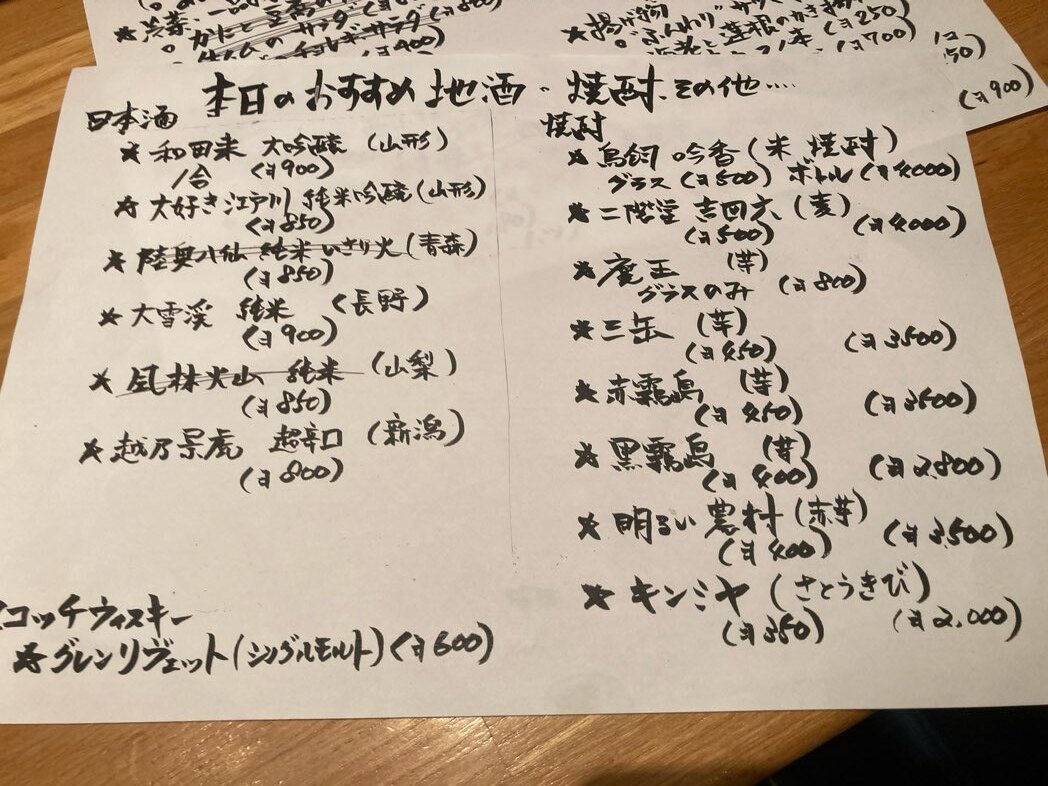 本日のおすすめ地酒・焼酎、その他....
日本酒
★ 和田来 大吟醸 (山形)
1合 (¥900)
★ 大好き江戸川 純米吟醸 (山形)
(¥850)
★ 陸奥八仙 純米 いさり火 (青森)
(¥850)
★ 大雪渓 純米 (長野)
(¥900)
★ 風林火山 純米 (山梨)
(¥850)
★ 越乃景虎 超辛口 (新潟)
(¥800)
スコッチウィスキー
★ グレンリヴェット (シングルモルト) (¥600)
焼酎
★ 鳥飼 吟香 (米 焼酎)
グラス (¥500) ボトル (¥4000)
★ 二階堂 吉四六 (麦)
(¥500) (¥4000)
★ 魔王 (芋)
グラスのみ (¥800)
★ 三岳 (芋)
(¥450) (¥3500)
★ 赤霧島 (芋)
(¥450) (¥3500)
★ 黒霧島 (芋)
(¥400) (¥2,800)
★ 明るい農村 (赤芋)
(¥400) (¥3,500)
★ キンミヤ (さとうきび)
(¥350) (¥2,000)
(¥250)
(¥700)
(¥900)
(¥900)